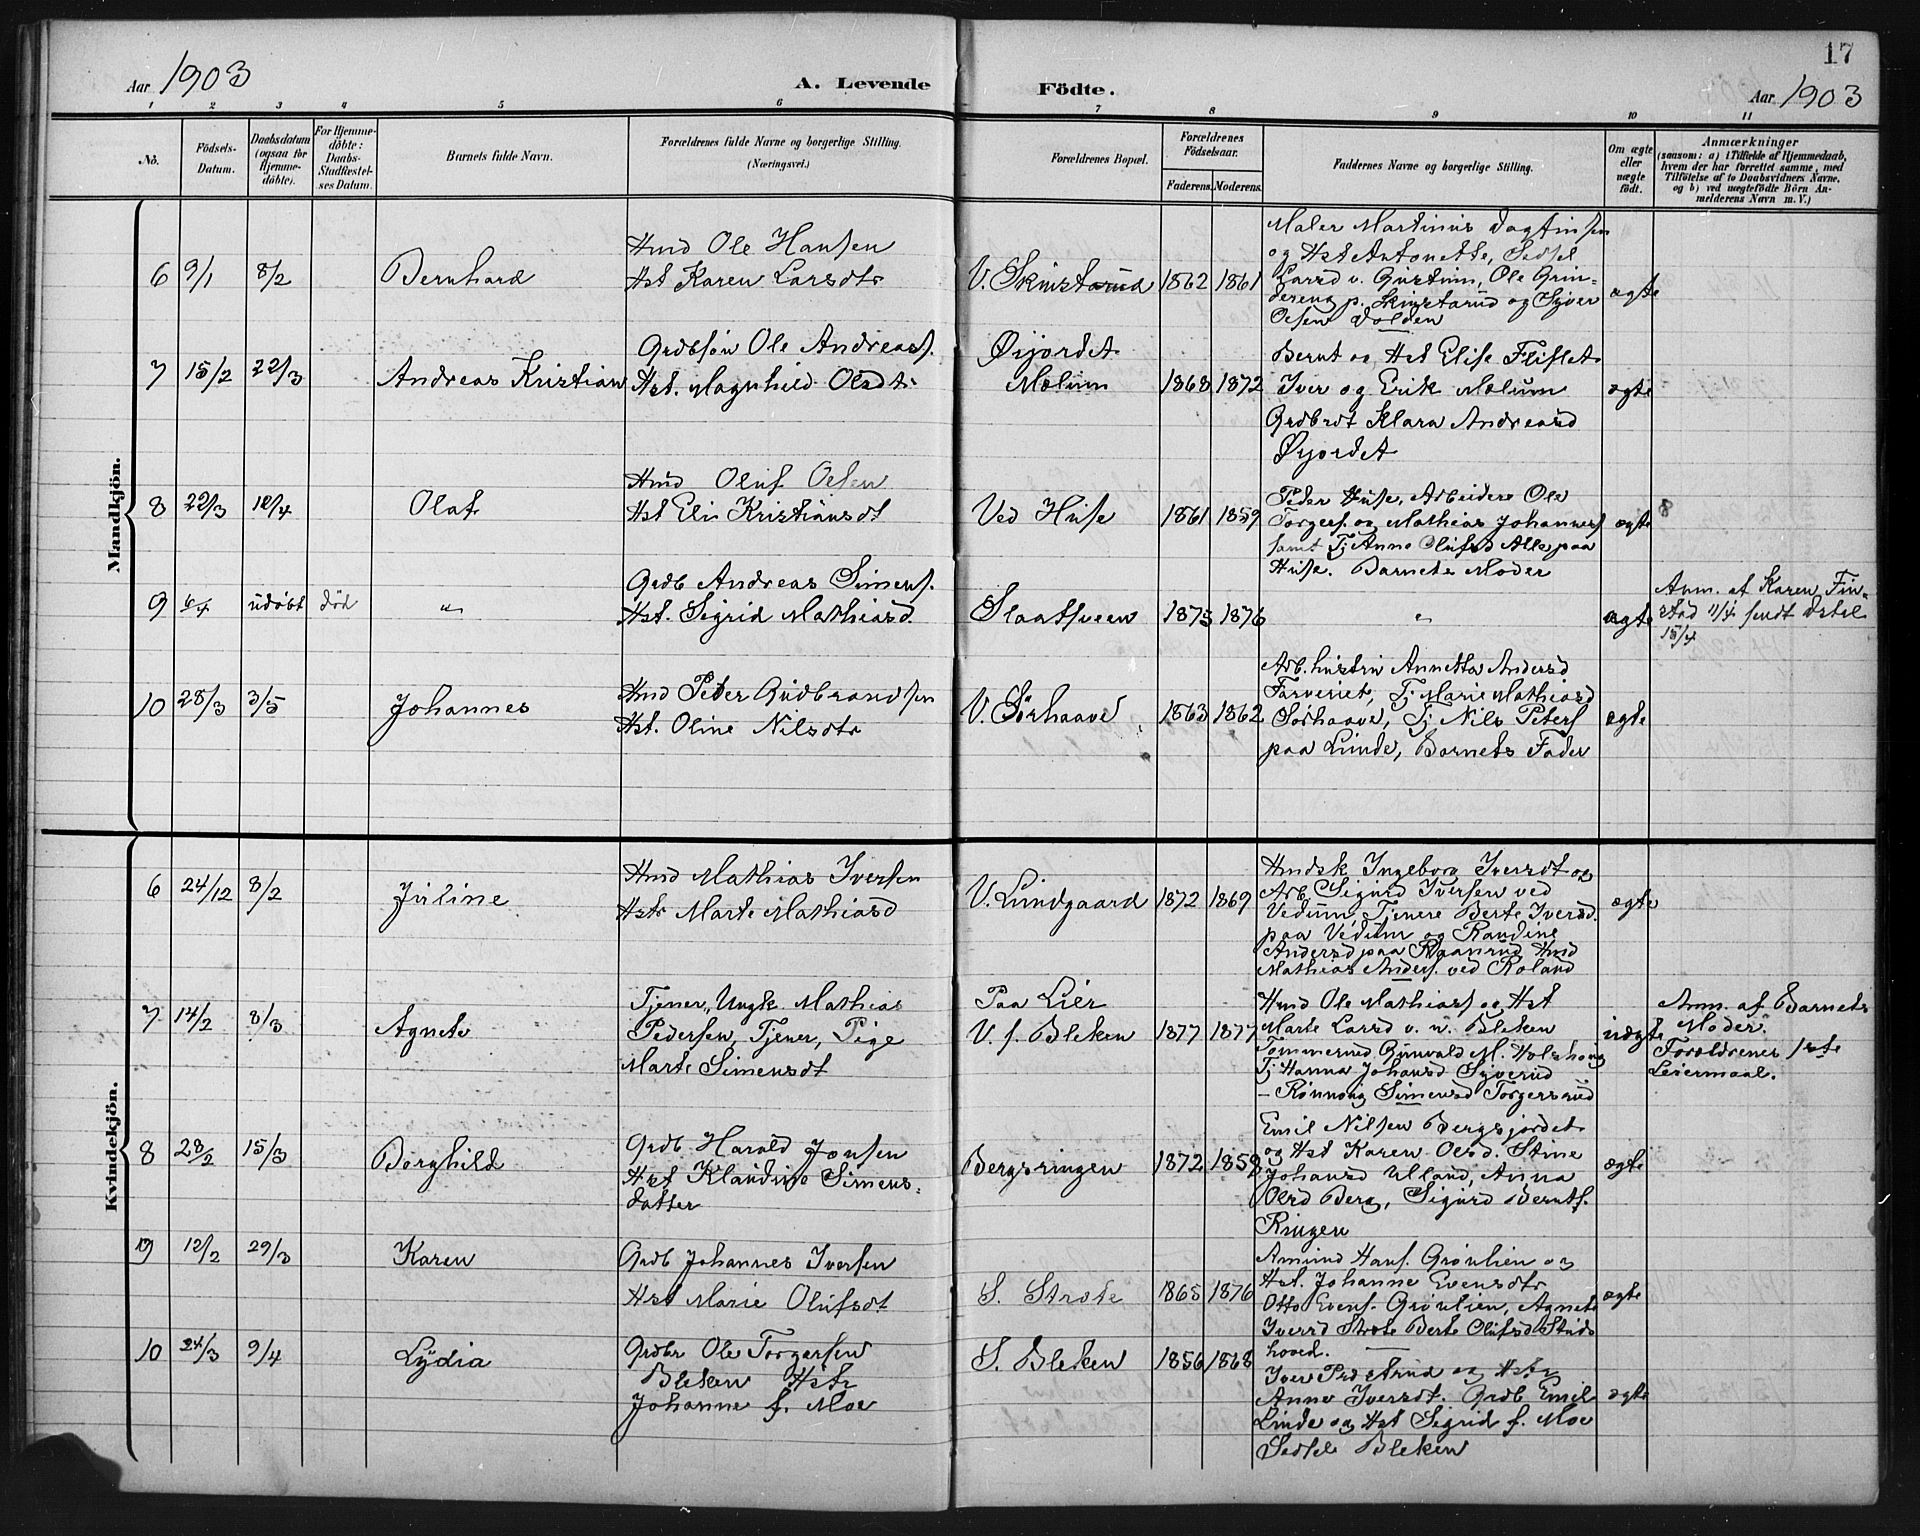 17
Aar 1903
A. Levende Födte.
Aar 1903
1 2 3 4 5 6 7 8 9 10 11
No.
Födsels-Datum.
Daabsdatum (ogsaa for Hjemme-döbte).
For Hjemme-döbte: Daabs-Stadfæstel-ses Datum.
Barnets fulde Navn.
Forældrenes fulde Navne og borgerlige Stilling.
(Næringsvei.)
Forældrenes Bopæl.
Forældrenes Födselsaar.
Faderens. Moderens.
Faddernes Navne og borgerlige Stilling.
Om ægte eller uægte født.
Anmærkninger
(saasom: a) i Tilfælde af Hjemmedaab,
hvem der har forrettet samme, med
Tilföielse af to Daabsvidners Navne,
og b) ved uægtefödte Börn An-
melderens Navn m. V.)
Mandkjön.
6 9/1 8/2 Bernhard
Hmd Ole Hansen
Hst Karen Larsdtr
V. Skinstarud 1862 1861
Maler Martinus Dagfinsen
og Hst Antonette, Sedsel
Larsd v. Gustum, Ole Grin-
dereng p. Skinstarud og Syver
Olsen Volden
ægte
7 15/2 22/3 Andreas Kristian
Grdbsön Ole Andreass.
Hst. Magnhild Olsdtr
Øijordet
Mælum 1868 1872
Bernt og Hst Elise Fliflet
Iver og Erik Mælum
Grdbrdt Klara Andreasd
Øijordet
ægte
8 22/3 12/4 Olaf
Hmd Oluf Olsen
Hst Eli Kristiansdt
Ved Huse 1861 1859
Peder Huse, Arbeidere Ole
Torgers. og Mathias Johanness
samt Tj Anne Olufsd Alle paa
Huse. Barnets Moder
ægte 8
9 6/4 udöbt död "
Grdb Andreas Simens.
Hst. Sigrid Mathiasd
Slaatsveen 1875 1876 " ægte
Anm. af Karen Fin-
stad 11/4 sendt Østel
15/4
10 28/3 3/5 Johannes
Hmd Peder Gudbrandsen
Hst. Oline Nilsdtr
V. Sörhaave 1863 1862
Arb.hustru Annetta Andersd
Farveriet, Tj Marie Mathiasd
Sörhaave, Tj Nils Peters
paa Linde, Barnets Fader
ægte
Kvindekjön.
6 24/12 8/2 Juline
Hmd Mathias Iversen
Hstr Marte Mathiasd
V. Lundgaard 1872 1869
Hmdsk Ingeborg Iversdt og
Arb. Sigurd Iversen ved
Vedum, Tjenere Berte Iversd.
paa Vedum og Randine
Andersd paa Raanrud Hmd
Mathias Anders. ved Roland
ægte
7 14/2 8/3 Agnete
Tjener, Ungk Mathias
Pedersen, Tjener, Pige
Marte Simensdt
Paa Lier
V. f. Bleken 1877 1877
Hmd Ole Mathiass og Hst
Marte Larsd v. n. Bleken
Tömmermd Grunvald M. Holshoug
Tj Hanna Johansd Syverud
— Rønnoug Simensd Torgersrud
uægte
Anm. af Barnets
Moder.
Forældrenes 1ste
Leiermaal.
8 28/2 15/3 Borghild
Grdb. Harald Jonsen
Hst Klaudine Simens-
datter
Bergsringen 1872 1858
Emil Nilsen Bergsjordet
og Hst Karen Olsd. Stine
Johansd Ulland, Anna
Olsd Berg, Sigurd Bernts.
Ringen
ægte
9 12/2 29/3 Karen
Grdb Johannes Iversen
Hst Marie Olufsdt
S. Strate 1865 1876
Amund Hans. Grøvlien og
Hst. Johanne Evensdtr
Otto Evens. Grøvlien, Agnete
Iversd Strate Berte Olufsd Studs
hoved.
ægte
10 24/3 9/4 Lydia
Grdbr Ole Torgersen
Bleken Hstr
Johanne f. Moe
S. Bleken 1856 1868
Iver Prdstrud og Hstr
Anne Iversdt. Grdb Emil
Linde og Hst Sigrid f. Moe
Sedsel Bleken
ægte